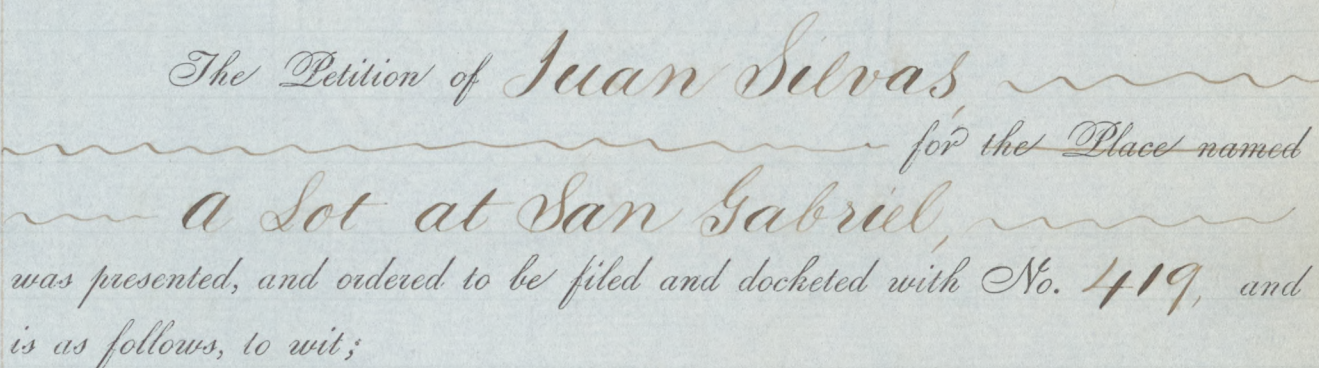 The Petition of Juan Silvas,
for the Place named
a Lot at San Gabriel,
was presented, and ordered to be filed and docketed with No. 419, and
is as follows, to wit;